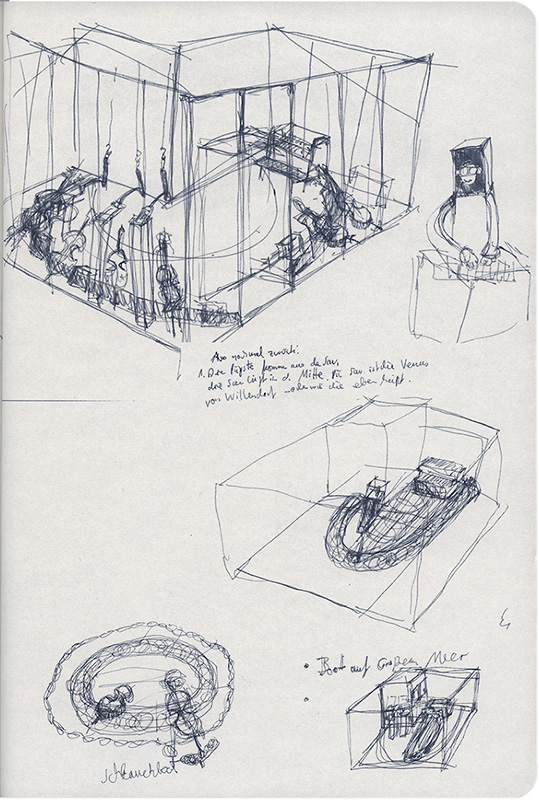 Also nochmal zurück:
1. Die Päpste kommen aus der Sau,
die Sau liegt in d. Mitte. Die Sau ist die Venus
von Willendorf – oder wie die eben heißt.
• Boot auf Großem Meer
•
Schlauchboot